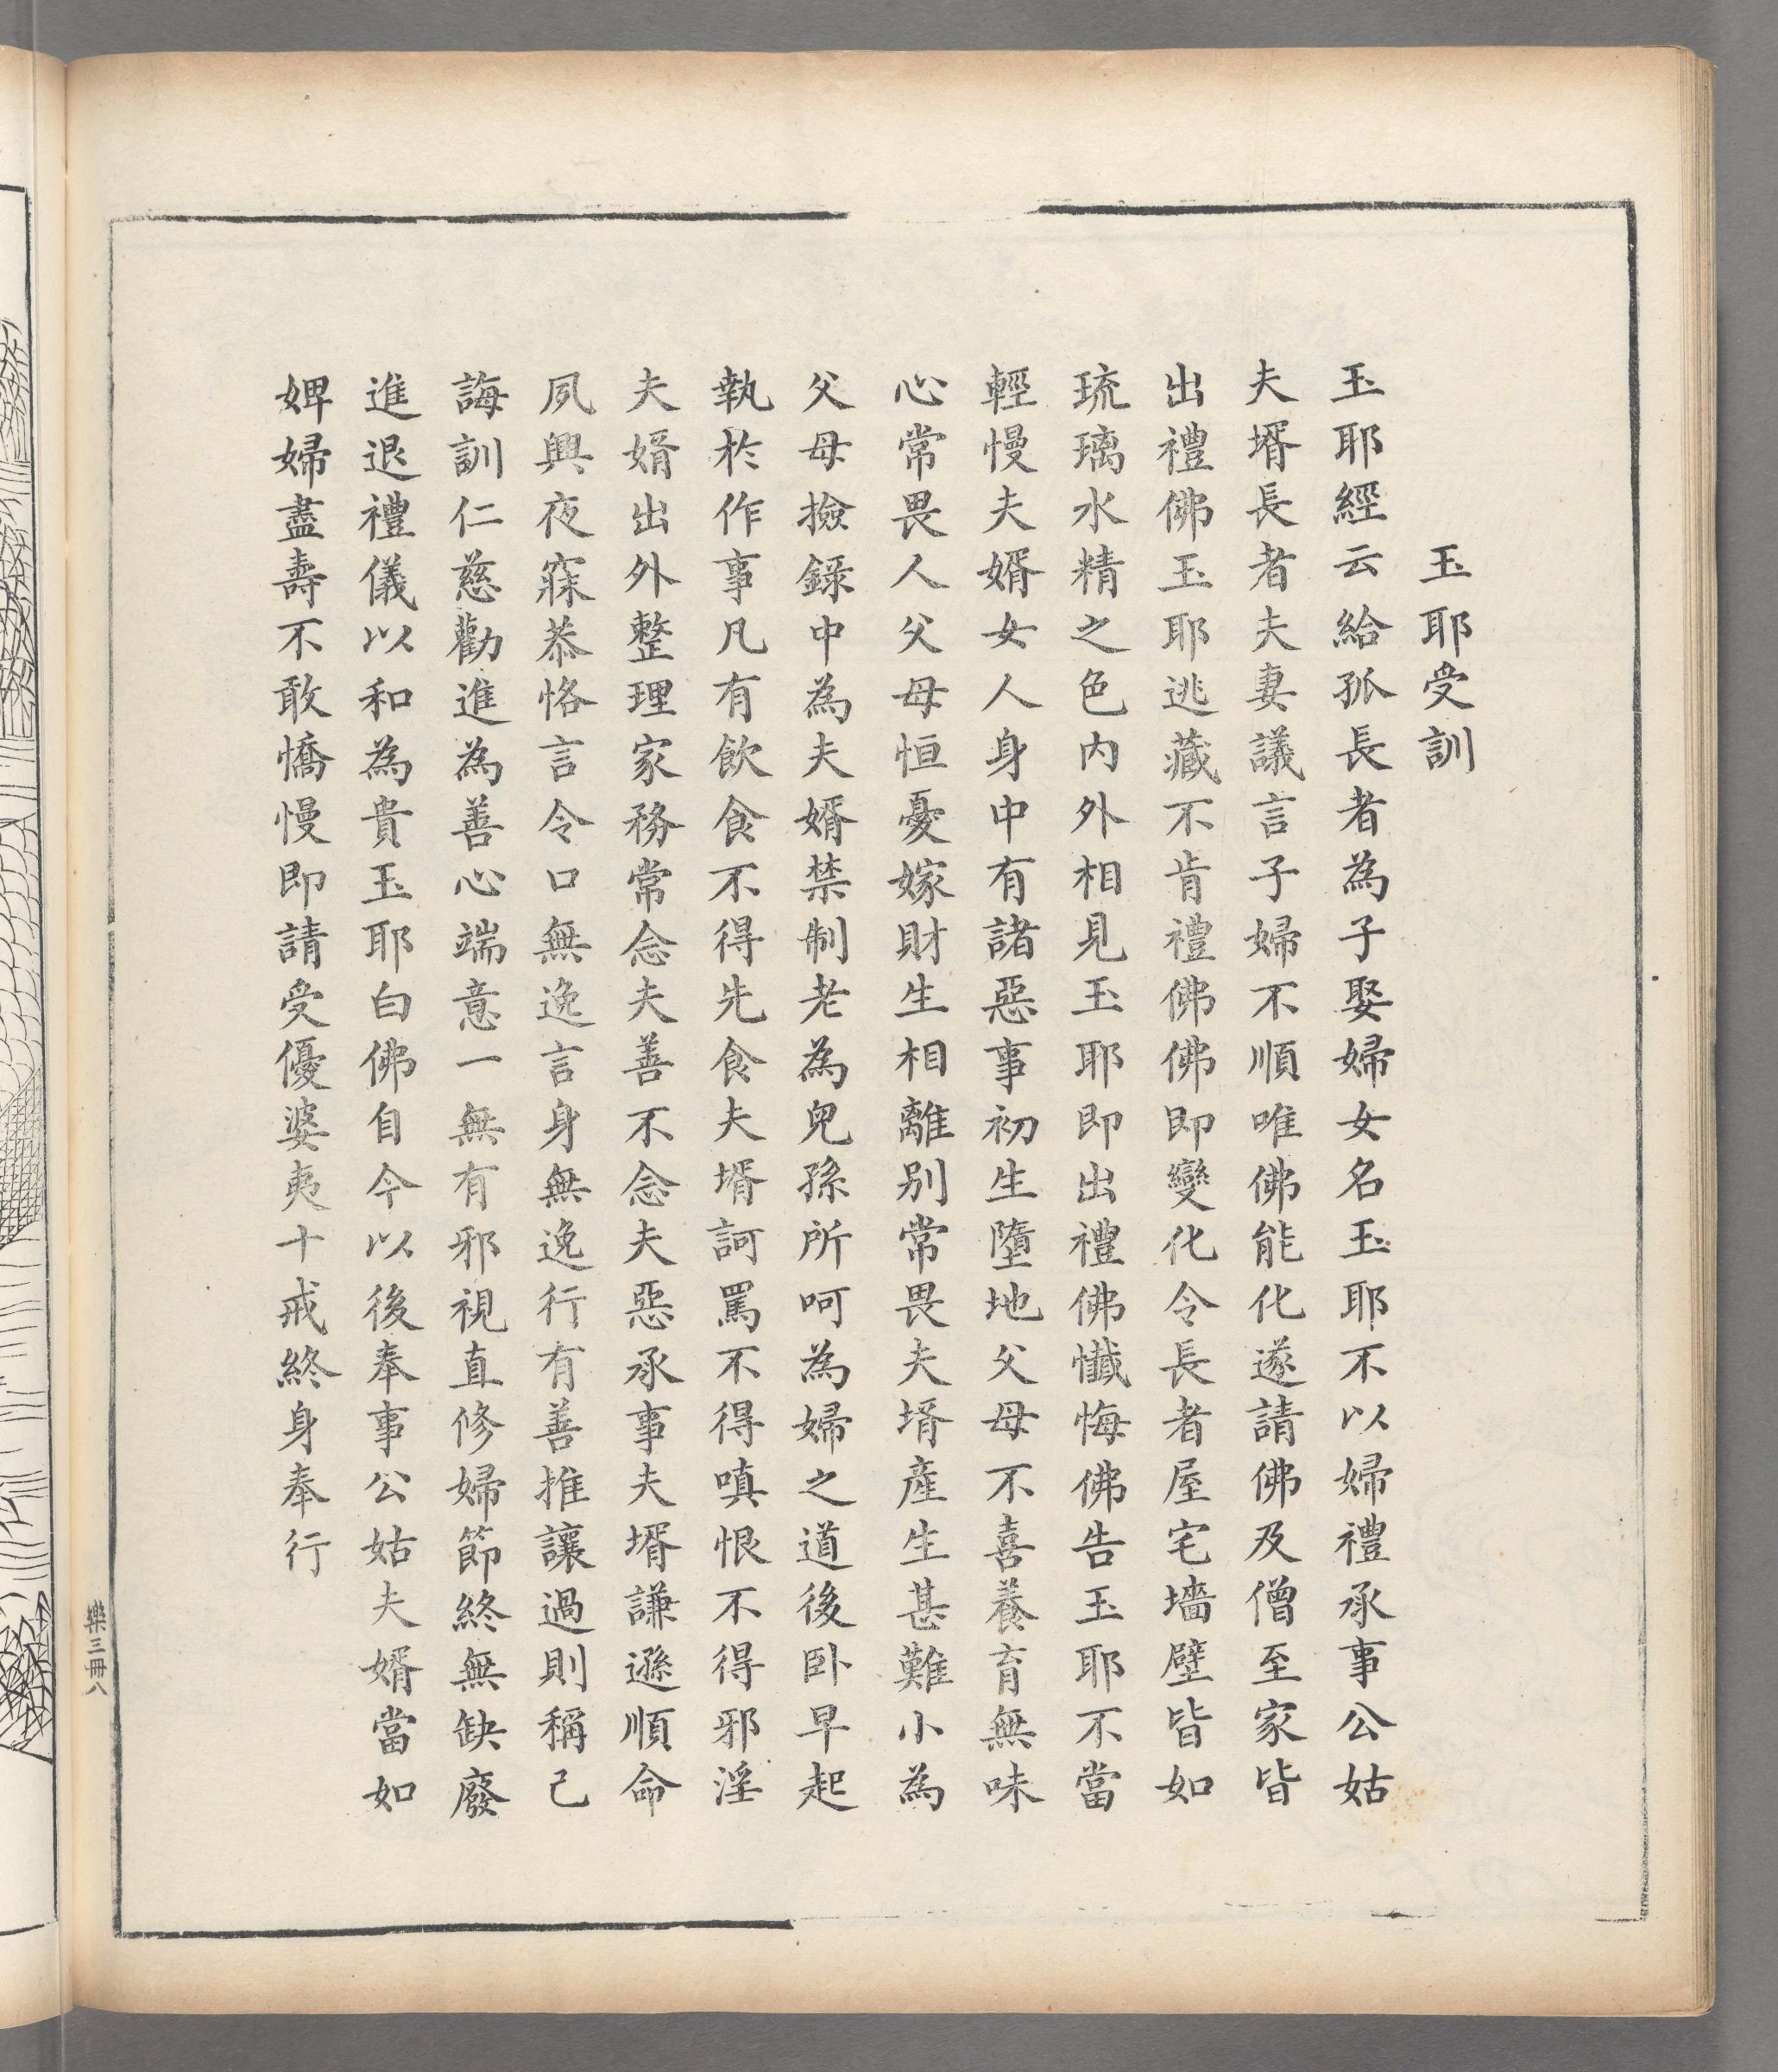 玉耶受訓
玉耶經云給孤長者為子娶婦女名玉耶不以婦禮承事公姑
夫壻長者夫妻議言子婦不順唯佛能化遂請佛及僧至家皆
出禮佛玉耶逃藏不肯禮佛佛即變化令長者屋宅墻壁皆如
琉璃水精之色內外相見玉耶即出禮佛懺悔佛告玉耶不當
輕慢夫婿女人身中有諸惡事初生墮地父母不喜養育無味
心常畏人父母恒憂嫁財生相離別常畏夫壻產生甚難小為
父母撿錄中為夫婿禁制老為兒孫所呵為婦之道後卧早起
執於作事凡有飲食不得先食夫壻訶罵不得嗔恨不得邪淫
夫婿出外整理家務常念夫善不念夫惡承事夫壻謙遜順命
夙興夜寐恭恪言令口無逸言身無逸行有善推讓過則稱己
誨訓仁慈勸進為善心端意一無有邪視直修婦節終無缺廢
進退禮儀以和為貴玉耶白佛自今以後奉事公姑夫婿當如
婢婦盡壽不敢憍慢即請受優婆夷十戒終身奉行
樂三冊八